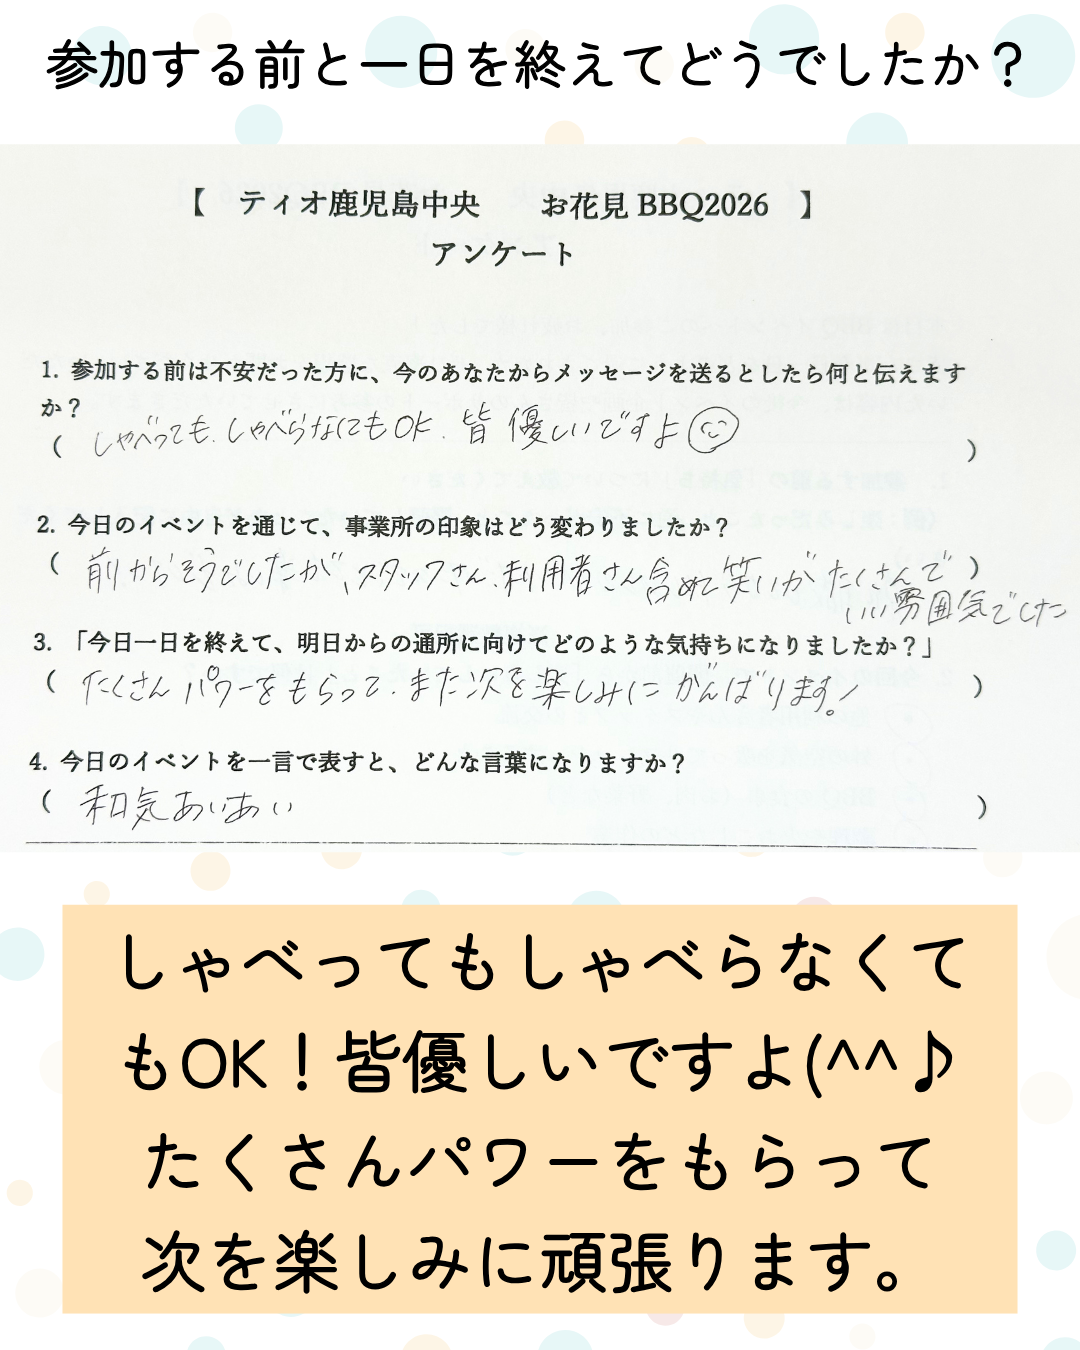 参加する前と一日を終えてどうでしたか？
【　ティオ鹿児島中央　　お花見 BBQ2026　】
アンケート
1. 参加する前は不安だった方に、今のあなたからメッセージを送るとしたら何と伝えます
か？
( しゃべっても、しゃべらなくてもOK、皆 優しいですよ )
2. 今日のイベントを通じて、事業所の印象はどう変わりましたか？
( 前からそうでしたが、スタッフさん、利用者さん含めて笑いがたくさんで )
いい雰囲気でした
3. 「今日一日を終えて、明日からの通所に向けてどのような気持ちになりましたか？」
( たくさんパワーをもらって、また次を楽しみにがんばります！ )
4. 今日のイベントを一言で表すと、どんな言葉になりますか？
( 和気あいあい )
しゃべってもしゃべらなくて
もOK！皆優しいですよ(^^♪
たくさんパワーをもらって
次を楽しみに頑張ります。